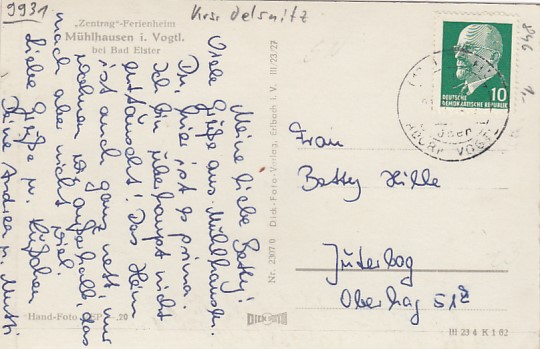 9931
Krsr Oelsnitz
„Zentrag"-Ferienheim
Mühlhausen i. Vogtl.
bei Bad Elster
Meine liebe Betty!
Viele Grüße aus Mühlhausen.
Dir. Hier ist es prima.
Ich bin überhaupt nicht
enttäuscht! Das Heim
ist auch ganz nett, nur
wohnen wir außerhalb, das
macht aber nicht viel.
Liebe Grüße u. Küßchen
Deine Andrea u. Mutti
III/23/27
Dick-Foto-Verlag, Erlbach i. V.
Nr. 2307 0
Hand-Foto
20
DICK
10
DEUTSCHE
DEMOKRATISCHE REPUBLIK
VOGTL
Frau
Betty Hille
Jüterbog
Oberhag 51a
III 23 4 K 1 62